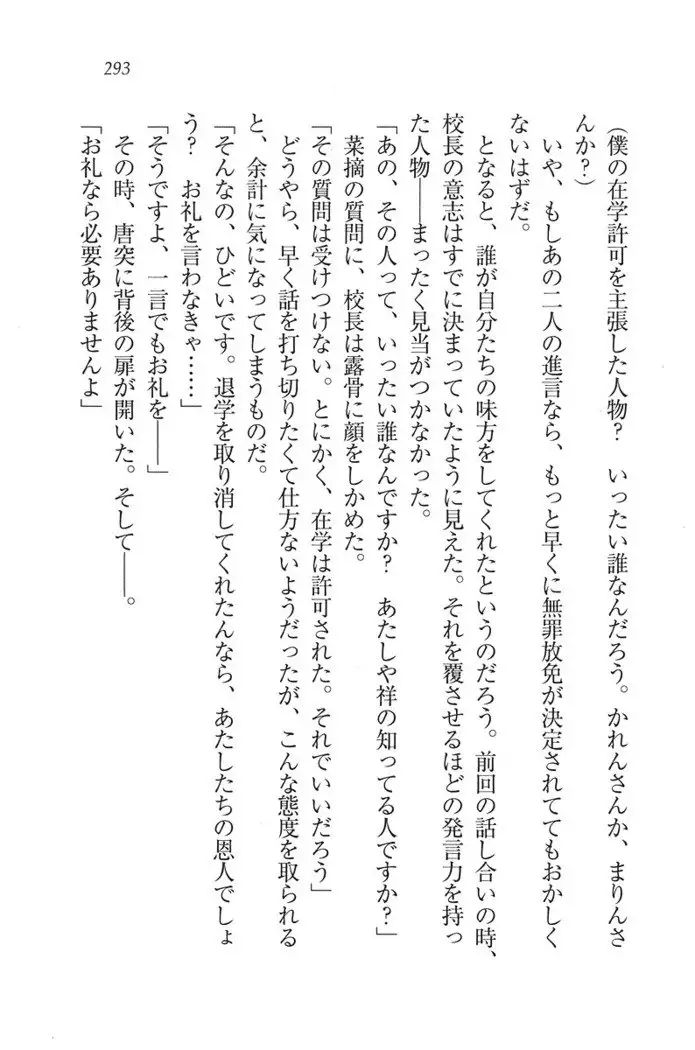 293
(僕の在学許可を主張した人物?　いったい誰なんだろう。かれんさんか、まりんさ
んか?)
いや、もしあの二人の進言なら、もっと早くに無罪放免が決定されててもおかしく
ないはずだ。
となると、誰が自分たちの味方をしてくれたというのだろう。前回の話し合いの時、
校長の意志はすでに決まっていたように見えた。それを覆させるほどの発言力を持っ
た人物――まったく見当がつかなかった。
「あの、その人って、いったい誰なんですか?　あたしや祥の知ってる人ですか?」
菜摘の質問に、校長は露骨に顔をしかめた。
「その質問は受けつけない。とにかく、在学は許可された。それでいいだろう」
どうやら、早く話を打ち切りたくて仕方ないようだったが、こんな態度を取られる
と、余計に気になってしまうものだ。
「そんなの、ひどいです。退学を取り消してくれたんなら、あたしたちの恩人でしょ
う?　お礼を言わなきゃ……」
「そうですよ、一言でもお礼を――」
その時、唐突に背後の扉が開いた。そして――。
「お礼なら必要ありませんよ」